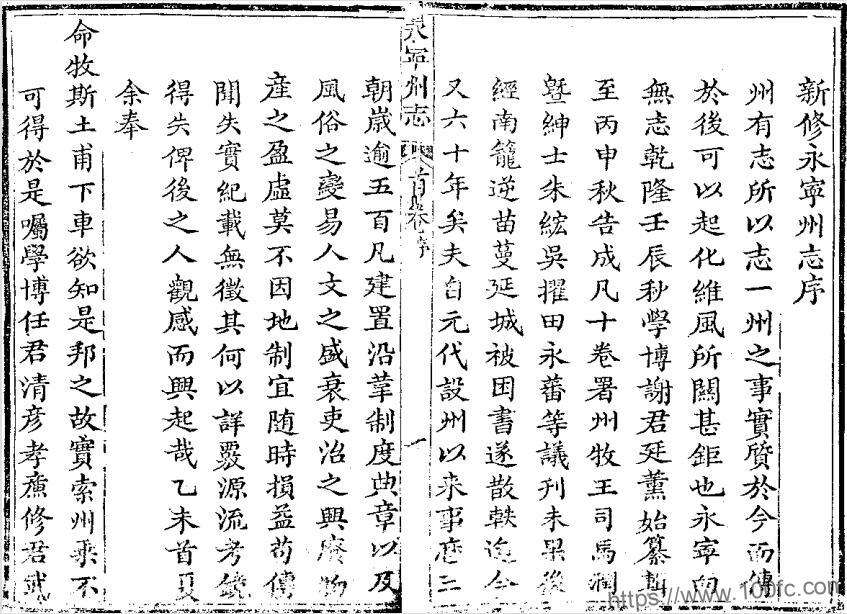 新修永寧州志序
州有志所以志一州之事實質於今而傳
於後可以起化維風所關甚鉅也永寧向
無志乾隆壬辰秋學博謝君廷薰始纂輯
至丙申秋告成凡十卷署州牧王司馬潤
暨紳士朱紘吳擢田永蕃等議刊未果後
經南籠逆苗蔓延城被困書遂散軼迄今
又六十年矣夫自元代設州以來事歷三
永寧州志
首卷序
一
朝歲逾五百凡建置沿革制度典章以及
風俗之變易人文之盛衰吏治之興廢物
產之盈虛莫不因地制宜随時損益苟傳
聞失實紀載無徵其何以詳覈源流考鏡
得失俾後之人觀感而興起哉乙未首夏
余奉
命牧斯土甫下車欲知是邦之故實索州乘不
可得於是囑學博任君清彥孝廉修君武
https://www.100fc.com